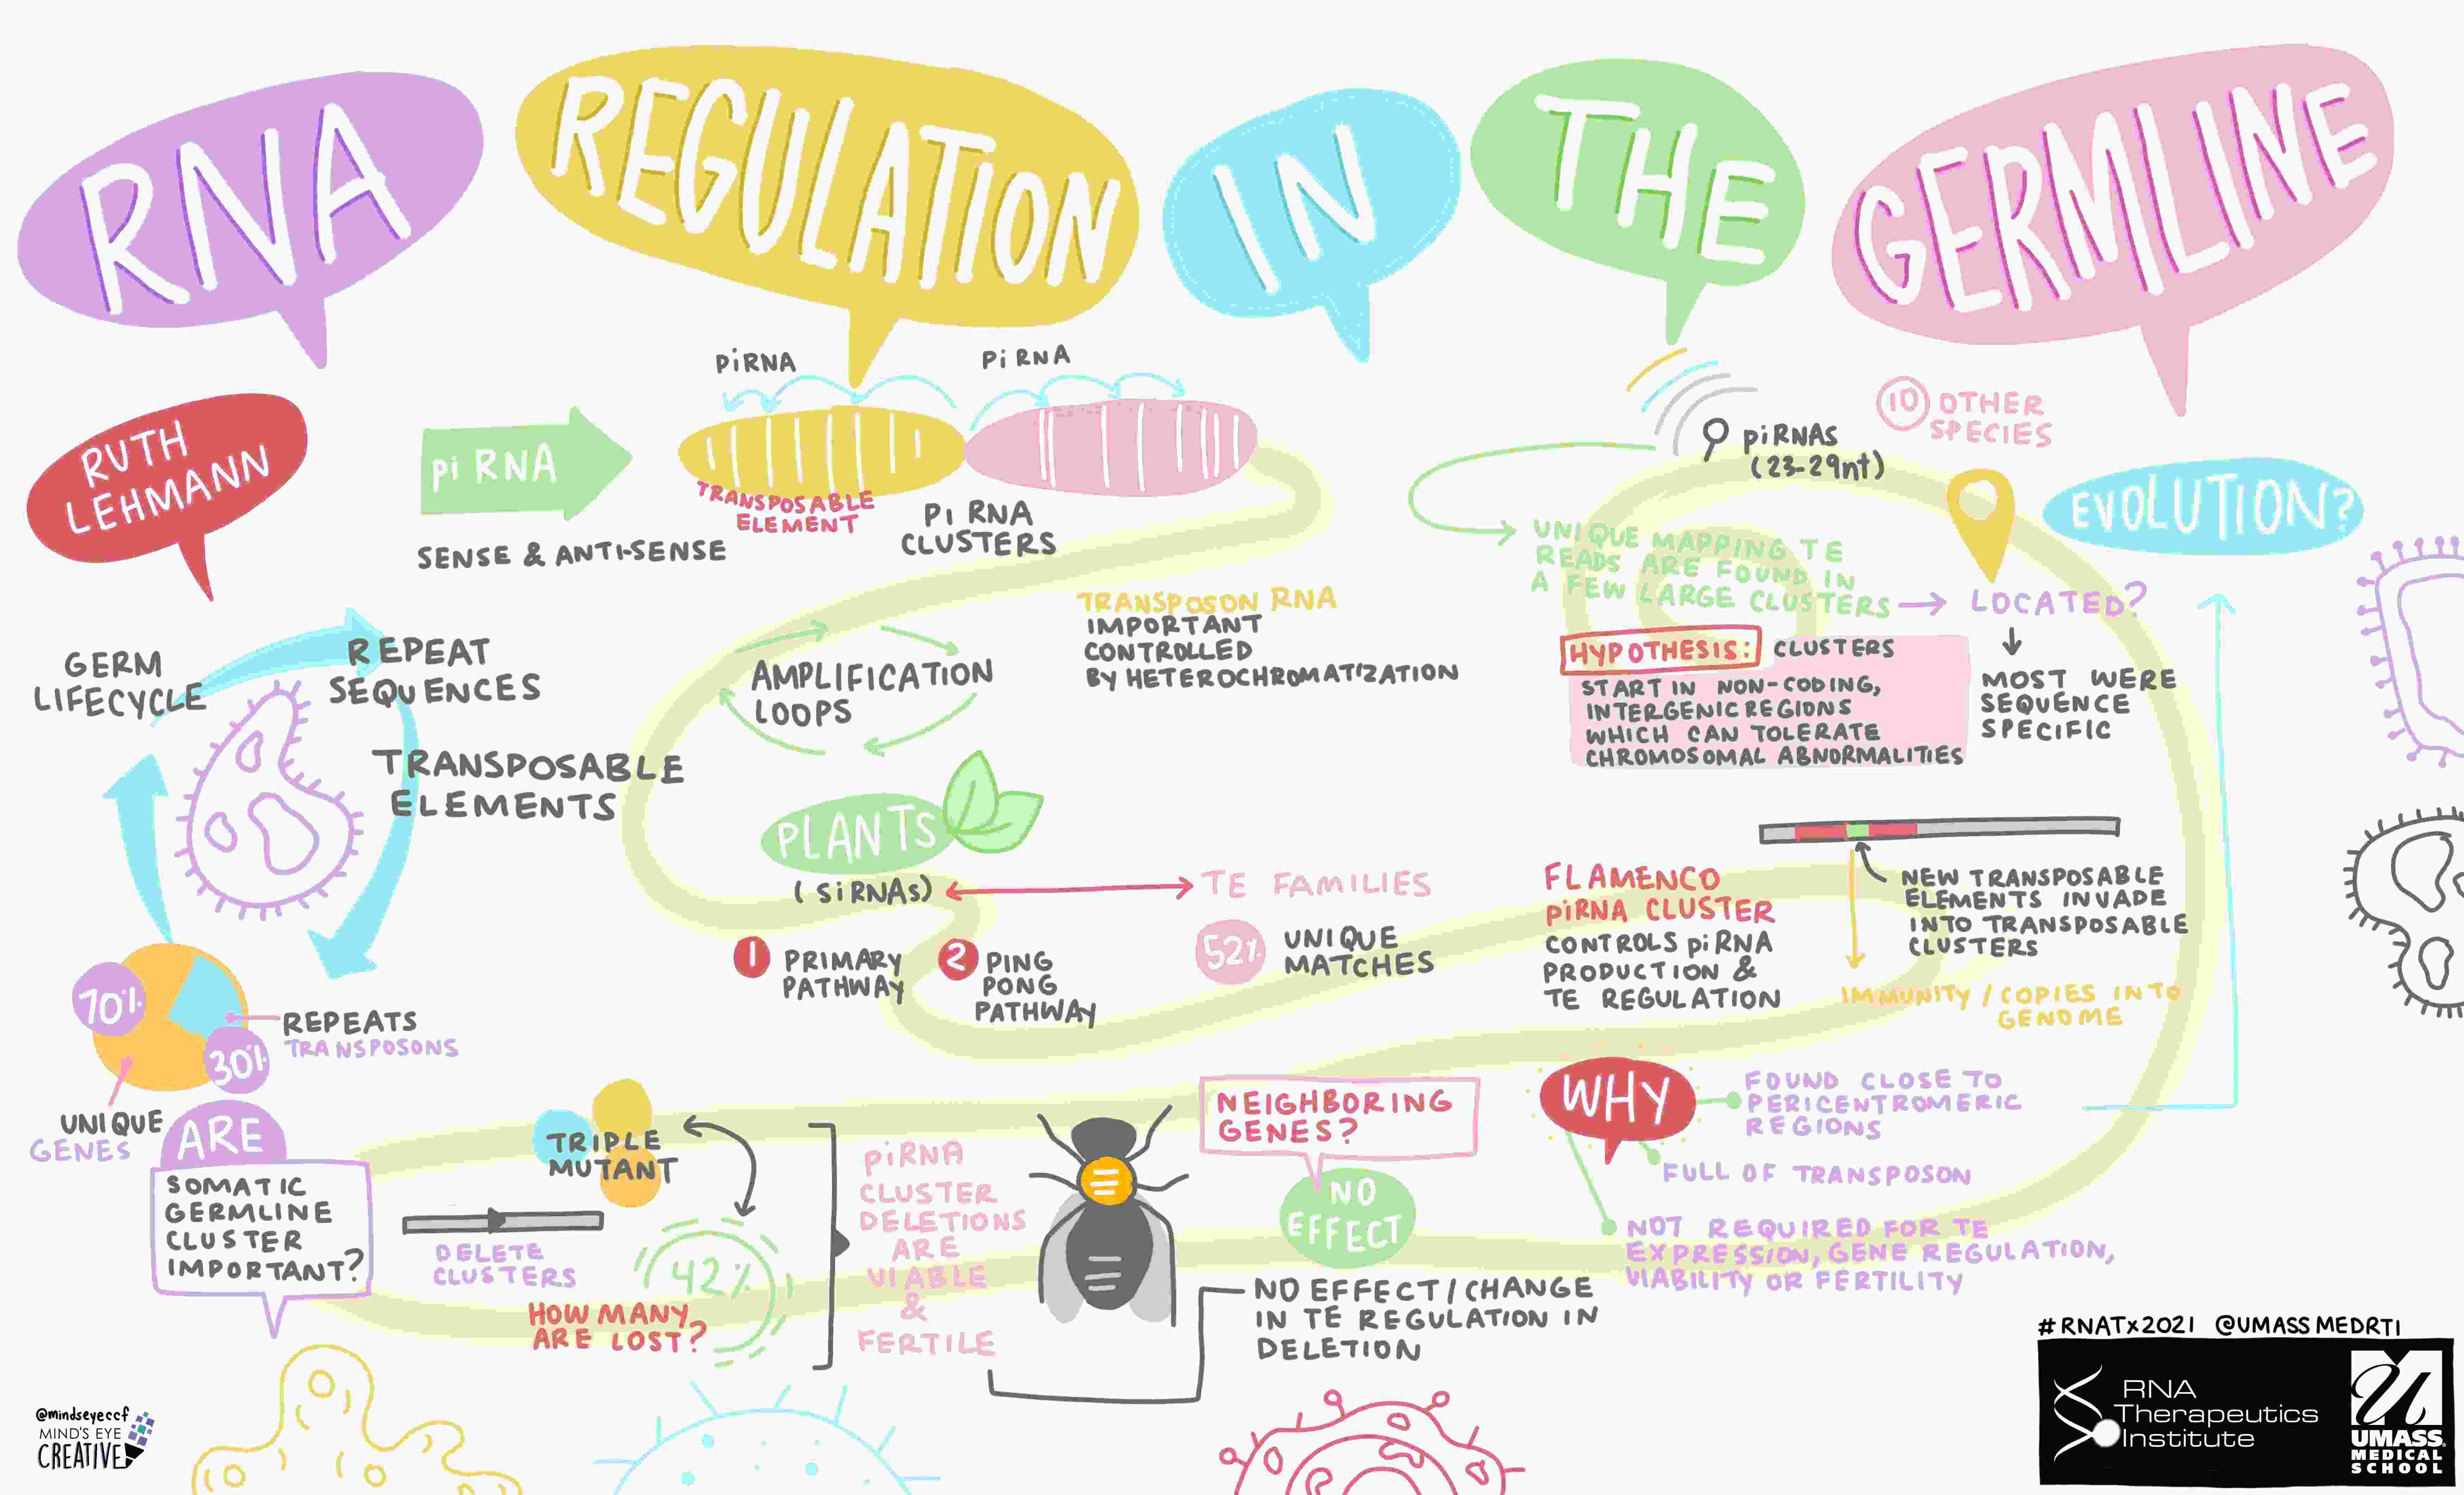 RNA
REGULATION
IN
THE
GERMLINE
RUTH
LEHMANN
piRNA
SENSE & ANTI-SENSE
piRNA
PiRNA
TRANSPOSABLE
ELEMENT
Pi RNA
CLUSTERS
GERM
LIFECYCLE
REPEAT
SEQUENCES
TRANSPOSABLE
ELEMENTS
70%
30%
REPEATS
TRANSPOSONS
UNIQUE
GENES
AMPLIFICATION
LOOPS
TRANSPOSON RNA
IMPORTANT
CONTROLLED
BY HETEROCHROMATIZATION
PLANTS
(SiRNAs)
TE FAMILIES
1 PRIMARY
PATHWAY
2 PING
PONG
PATHWAY
52% UNIQUE
MATCHES
piRNAS
(23-29nt)
10 OTHER
SPECIES
EVOLUTION?
UNIQUE MAPPING TE
READS ARE FOUND IN
A FEW LARGE CLUSTERS
LOCATED?
MOST WERE
SEQUENCE
SPECIFIC
HYPOTHESIS: CLUSTERS
START IN NON-CODING,
INTERGENIC REGIONS
WHICH CAN TOLERATE
CHROMOSOMAL ABNORMALITIES
FLAMENCO
PiRNA CLUSTER
CONTROLS piRNA
PRODUCTION &
TE REGULATION
NEW TRANSPOSABLE
ELEMENTS INVADE
INTO TRANSPOSABLE
CLUSTERS
IMMUNITY / COPIES INTO
GENOME
ARE
SOMATIC
GERMLINE
CLUSTER
IMPORTANT?
TRIPLE
MUTANT
DELETE
CLUSTERS
42%
HOW MANY
ARE LOST?
PiRNA
CLUSTER
DELETIONS
ARE
VIABLE
&
FERTILE
NEIGHBORING
GENES?
NO
EFFECT
NO EFFECT / CHANGE
IN TE REGULATION IN
DELETION
WHY
FOUND CLOSE TO
PERICENTROMERIC
REGIONS
FULL OF TRANSPOSON
NOT REQUIRED FOR TE
EXPRESSION, GENE REGULATION,
VIABILITY OR FERTILITY
#RNATX2021 @UMASSMEDRTI
RNA
Therapeutics
Institute
UMASS
MEDICAL
SCHOOL
@mindseyeccf
MIND'S EYE
CREATIVE